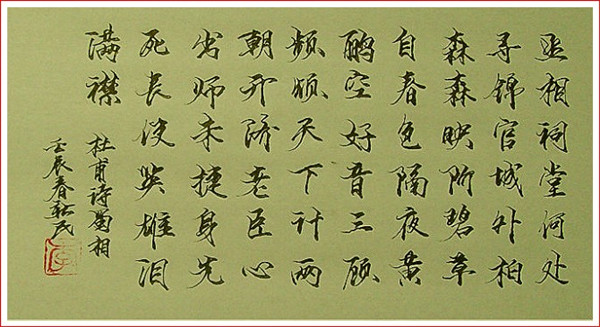 丞相祠堂何处
寻锦官城外柏
森森映阶碧草
自春色隔夜黄
鹂空好音三顾
频烦天下计两
朝开济老臣心
出师未捷身先
死长使英雄泪
满襟
杜甫诗蜀相
壬辰春